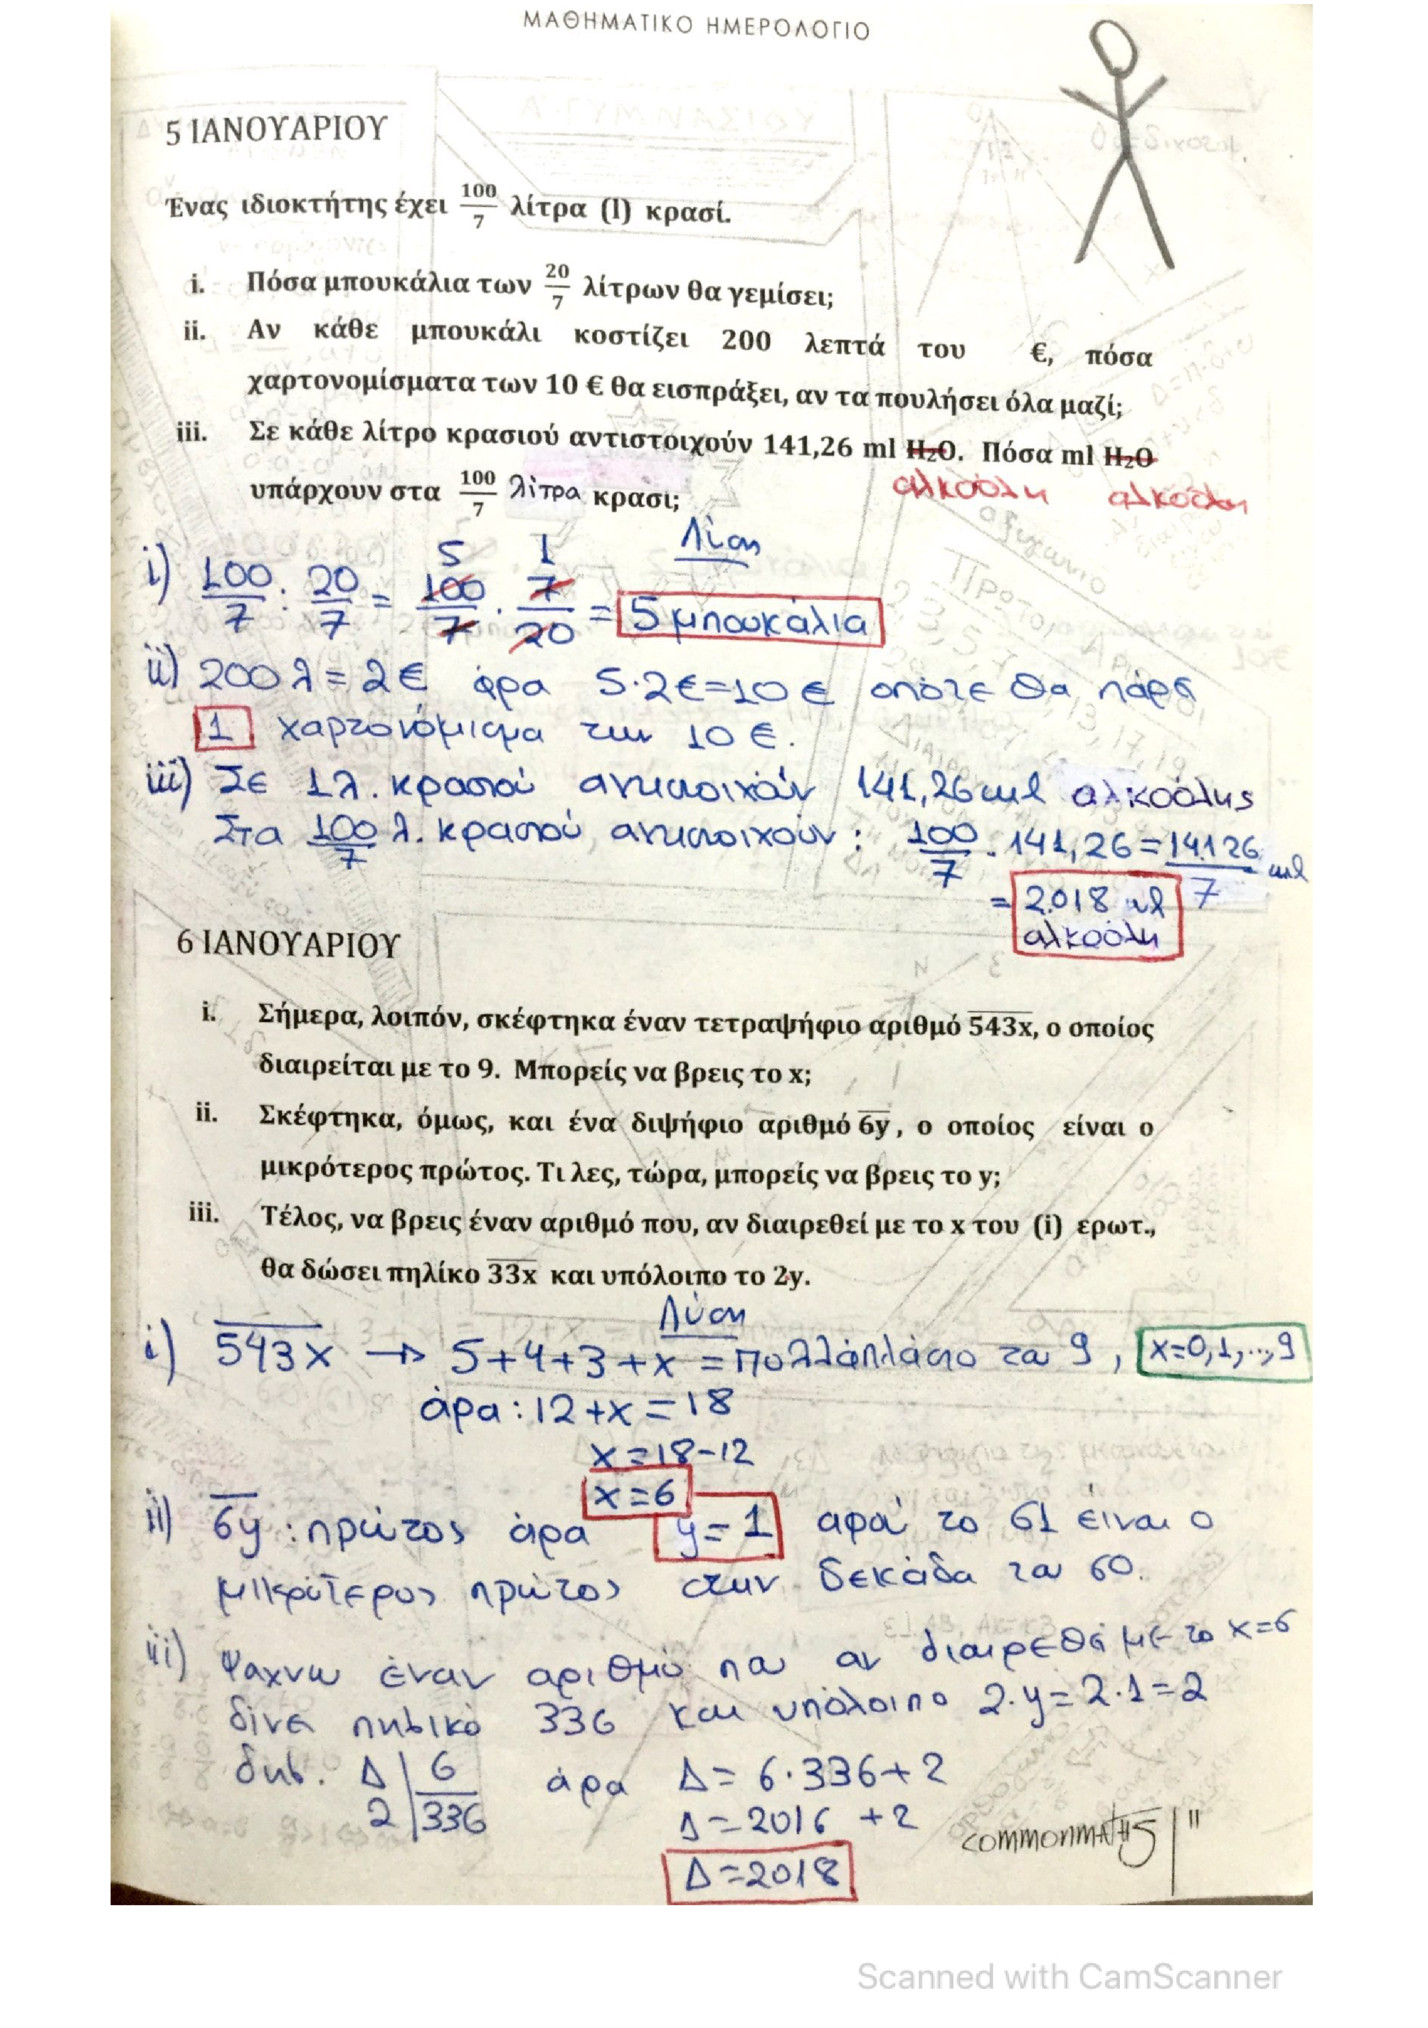 ΜΑΘΗΜΑΤΙΚΟ ΗΜΕΡΟΛΟΓΙΟ
5 ΙΑΝΟΥΑΡΙΟΥ
Ένας ιδιοκτήτης έχει 100/7 λίτρα (l) κρασί.
i. Πόσα μπουκάλια των 20/7 λίτρων θα γεμίσει;
ii. Αν κάθε μπουκάλι κοστίζει 200 λεπτά του €, πόσα
χαρτονομίσματα των 10 € θα εισπράξει, αν τα πουλήσει όλα μαζί;
iii. Σε κάθε λίτρο κρασιού αντιστοιχούν 141,26 ml H₂O. Πόσα ml H₂O
αλκοόλη αλκοόλη
υπάρχουν στα 100/7 λίτρα κρασι;
Λύση
i) 100/7 : 20/7 = 100/7 · 7/20 = 5 μπουκάλια
5 1
ii) 200 λ = 2€ άρα 5·2€=10€ οπότε θα πάρει
1 χαρτονόμισμα των 10 €.
iii) Σε 1λ. κρασιού αντιστοιχούν 141,26 ml αλκοόλης
Στα 100/7 λ. κρασιού αντιστοιχούν: 100/7 · 141,26 = 14126/7 ml
= 2.018 ml
αλκοόλη
6 ΙΑΝΟΥΑΡΙΟΥ
i. Σήμερα, λοιπόν, σκέφτηκα έναν τετραψήφιο αριθμό 543x, ο οποίος
διαιρείται με το 9. Μπορείς να βρεις το x;
ii. Σκέφτηκα, όμως, και ένα διψήφιο αριθμό 6y, ο οποίος είναι ο
μικρότερος πρώτος. Τι λες, τώρα, μπορείς να βρεις το y;
iii. Τέλος, να βρεις έναν αριθμό που, αν διαιρεθεί με το x του (i) ερωτ.,
θα δώσει πηλίκο 33x και υπόλοιπο το 2y.
Λύση
i) 543x → 5+4+3+x = πολλαπλάσιο του 9, x=0,1,..,9
άρα: 12+x=18
x=18-12
x=6
ii) 6y : πρώτος άρα y=1 αφού το 61 είναι ο
μικρότερος πρώτος στην δεκάδα του 60.
iii) Ψάχνω έναν αριθμό που αν διαιρεθεί με το x=6
δίνει πηλίκο 336 και υπόλοιπο 2·y=2·1=2
δηλ. Δ 6 άρα Δ= 6·336+2
2 336 Δ=2016 +2
commonmaths
Δ=2018
Scanned with CamScanner